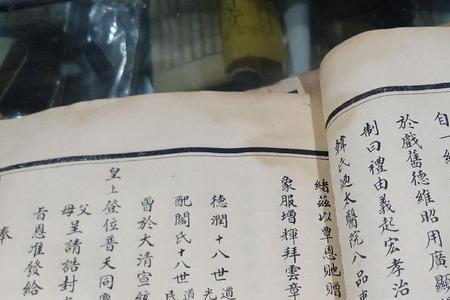 自一
於戲舊德維昭用廣顯
制曰禮由義起宏孝治
韓氏迺太醫院八品吏
緒茲以覃恩貤贈
象服增輝拜雲章
德潤十八世
道光
配閻氏十八世
道
民
曾於大清宣統
皇上登位普天同
父
母呈請誥封
旨恩准發給
奉